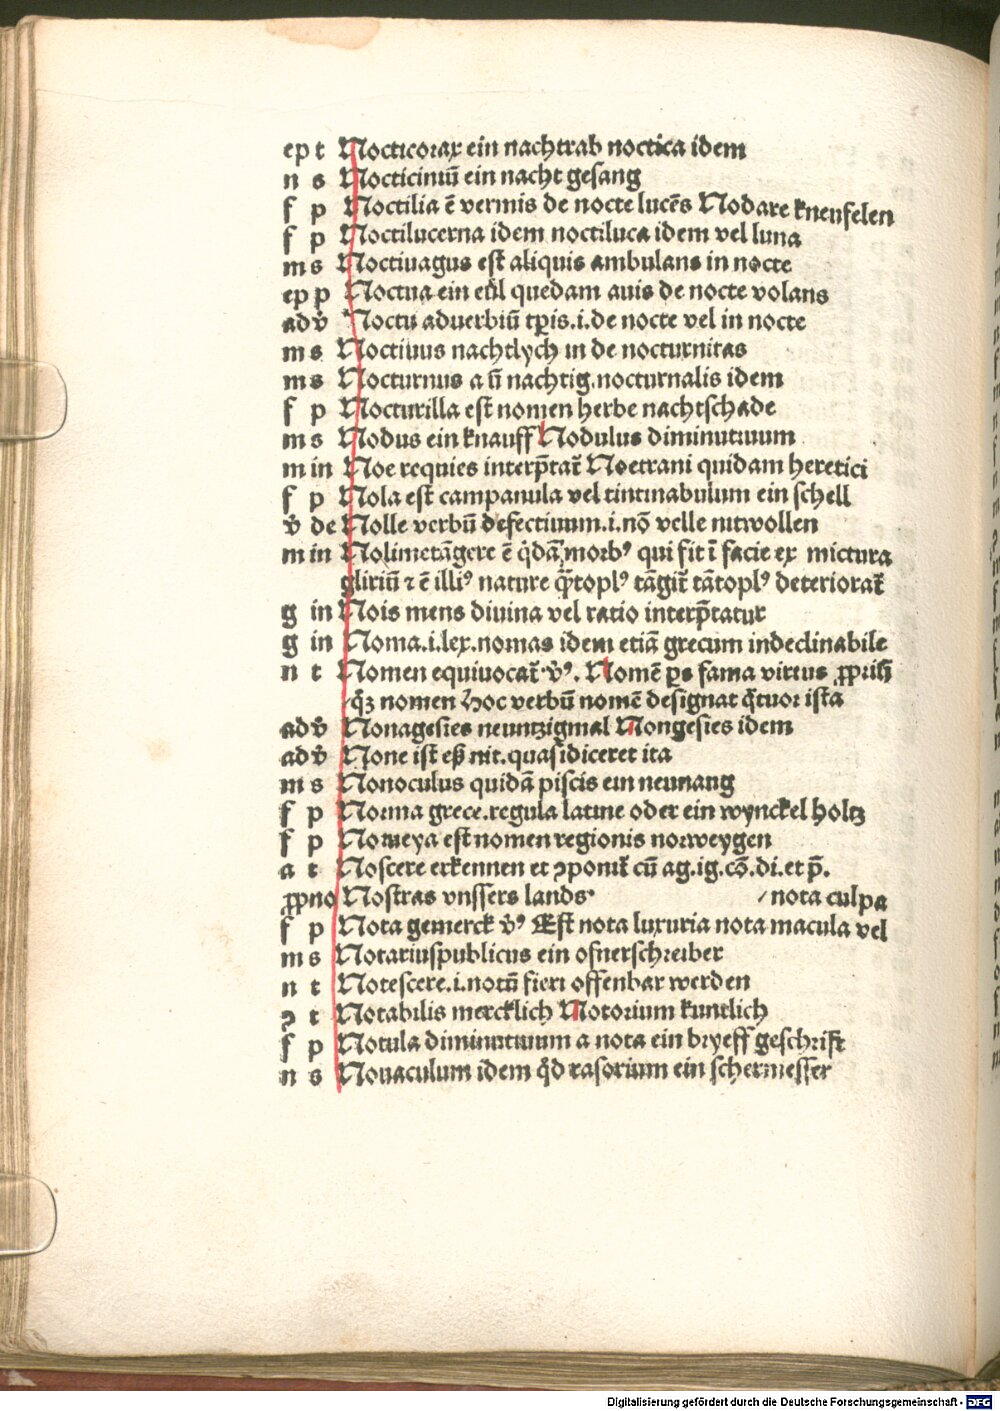 ep t Nocticorax ein nachtrab noctica idem
n s Nocticiniū ein nacht gesang
f p Noctilia ē vermis de nocte lucēs Nodare kneufelen
f p Noctilucerna idem noctiluca idem vel luna
m s Noctiuagus est aliquis ambulans in nocte
ep p Noctua ein eül quedam auis de nocte volans
adv̄ Noctu aduerbiū tp̄is.i.de nocte vel in nocte
m s Noctiuus nachtlych in de nocturnitas
m s Nocturnus a ū nachtig.nocturnalis idem
f p Nocturilla est nomen herbe nachtschade
m s Nodus ein knauff Nodulus diminutiuum
m in Noe requies interp̄tat᷑ Noetrani quidam heretici
f p Nola est campanula vel tintinabulum ein schell
v̄ de Nolle verbū defectiuum.i.nō velle nitwollen
m in Nolimetāgere ē q̇dā morbꝰ qui fit ī facie ex mictura
gliriū ⁊ ē illiꝰ nature q̄toplꝰ tāgit᷑ tātoplꝰ deteriorat᷑
g in Nois mens diuina vel ratio interp̄tatur
g in Noma.i.lex.nomas idem etiā grecum indeclinabile
n t Nomen equiuocat᷑ v̇ꝰ. Nomē ꝑs fama virtus
nomen hoc verbū nomē designat q̄tuor ista
adv̄ Nonagesies neuntzigmal Nongesies idem
adv̄ None ist eß nit.quasidiceret ita
m s Nonoculus quidā piscis ein neunaug
f p Norma grece.regula latine oder ein wynckel holtz
f p Norweya est nomen regionis norweygen
a t Noscere erkennen et ꝯponit᷑ cū ag.ig.cō.di.et p̄.
ꝓpno Nostras vnssers lands nota culpa
f p Nota gemerck v̇ꝰ Est nota luxuria nota macula vel
m s Notariuspublicus ein ofnerschreiber
n t Notescere.i.notū fieri offenbar werden
ꝯ t Notabilis mercklich Notorium kuntlich
f p Notula diminutiuum a nota ein bryeff geschrift
n s Nouaculum idem q̇d rasorium ein schermesser
Digitalisierung gefördert durch die Deutsche Forschungsgemeinschaft - DFG